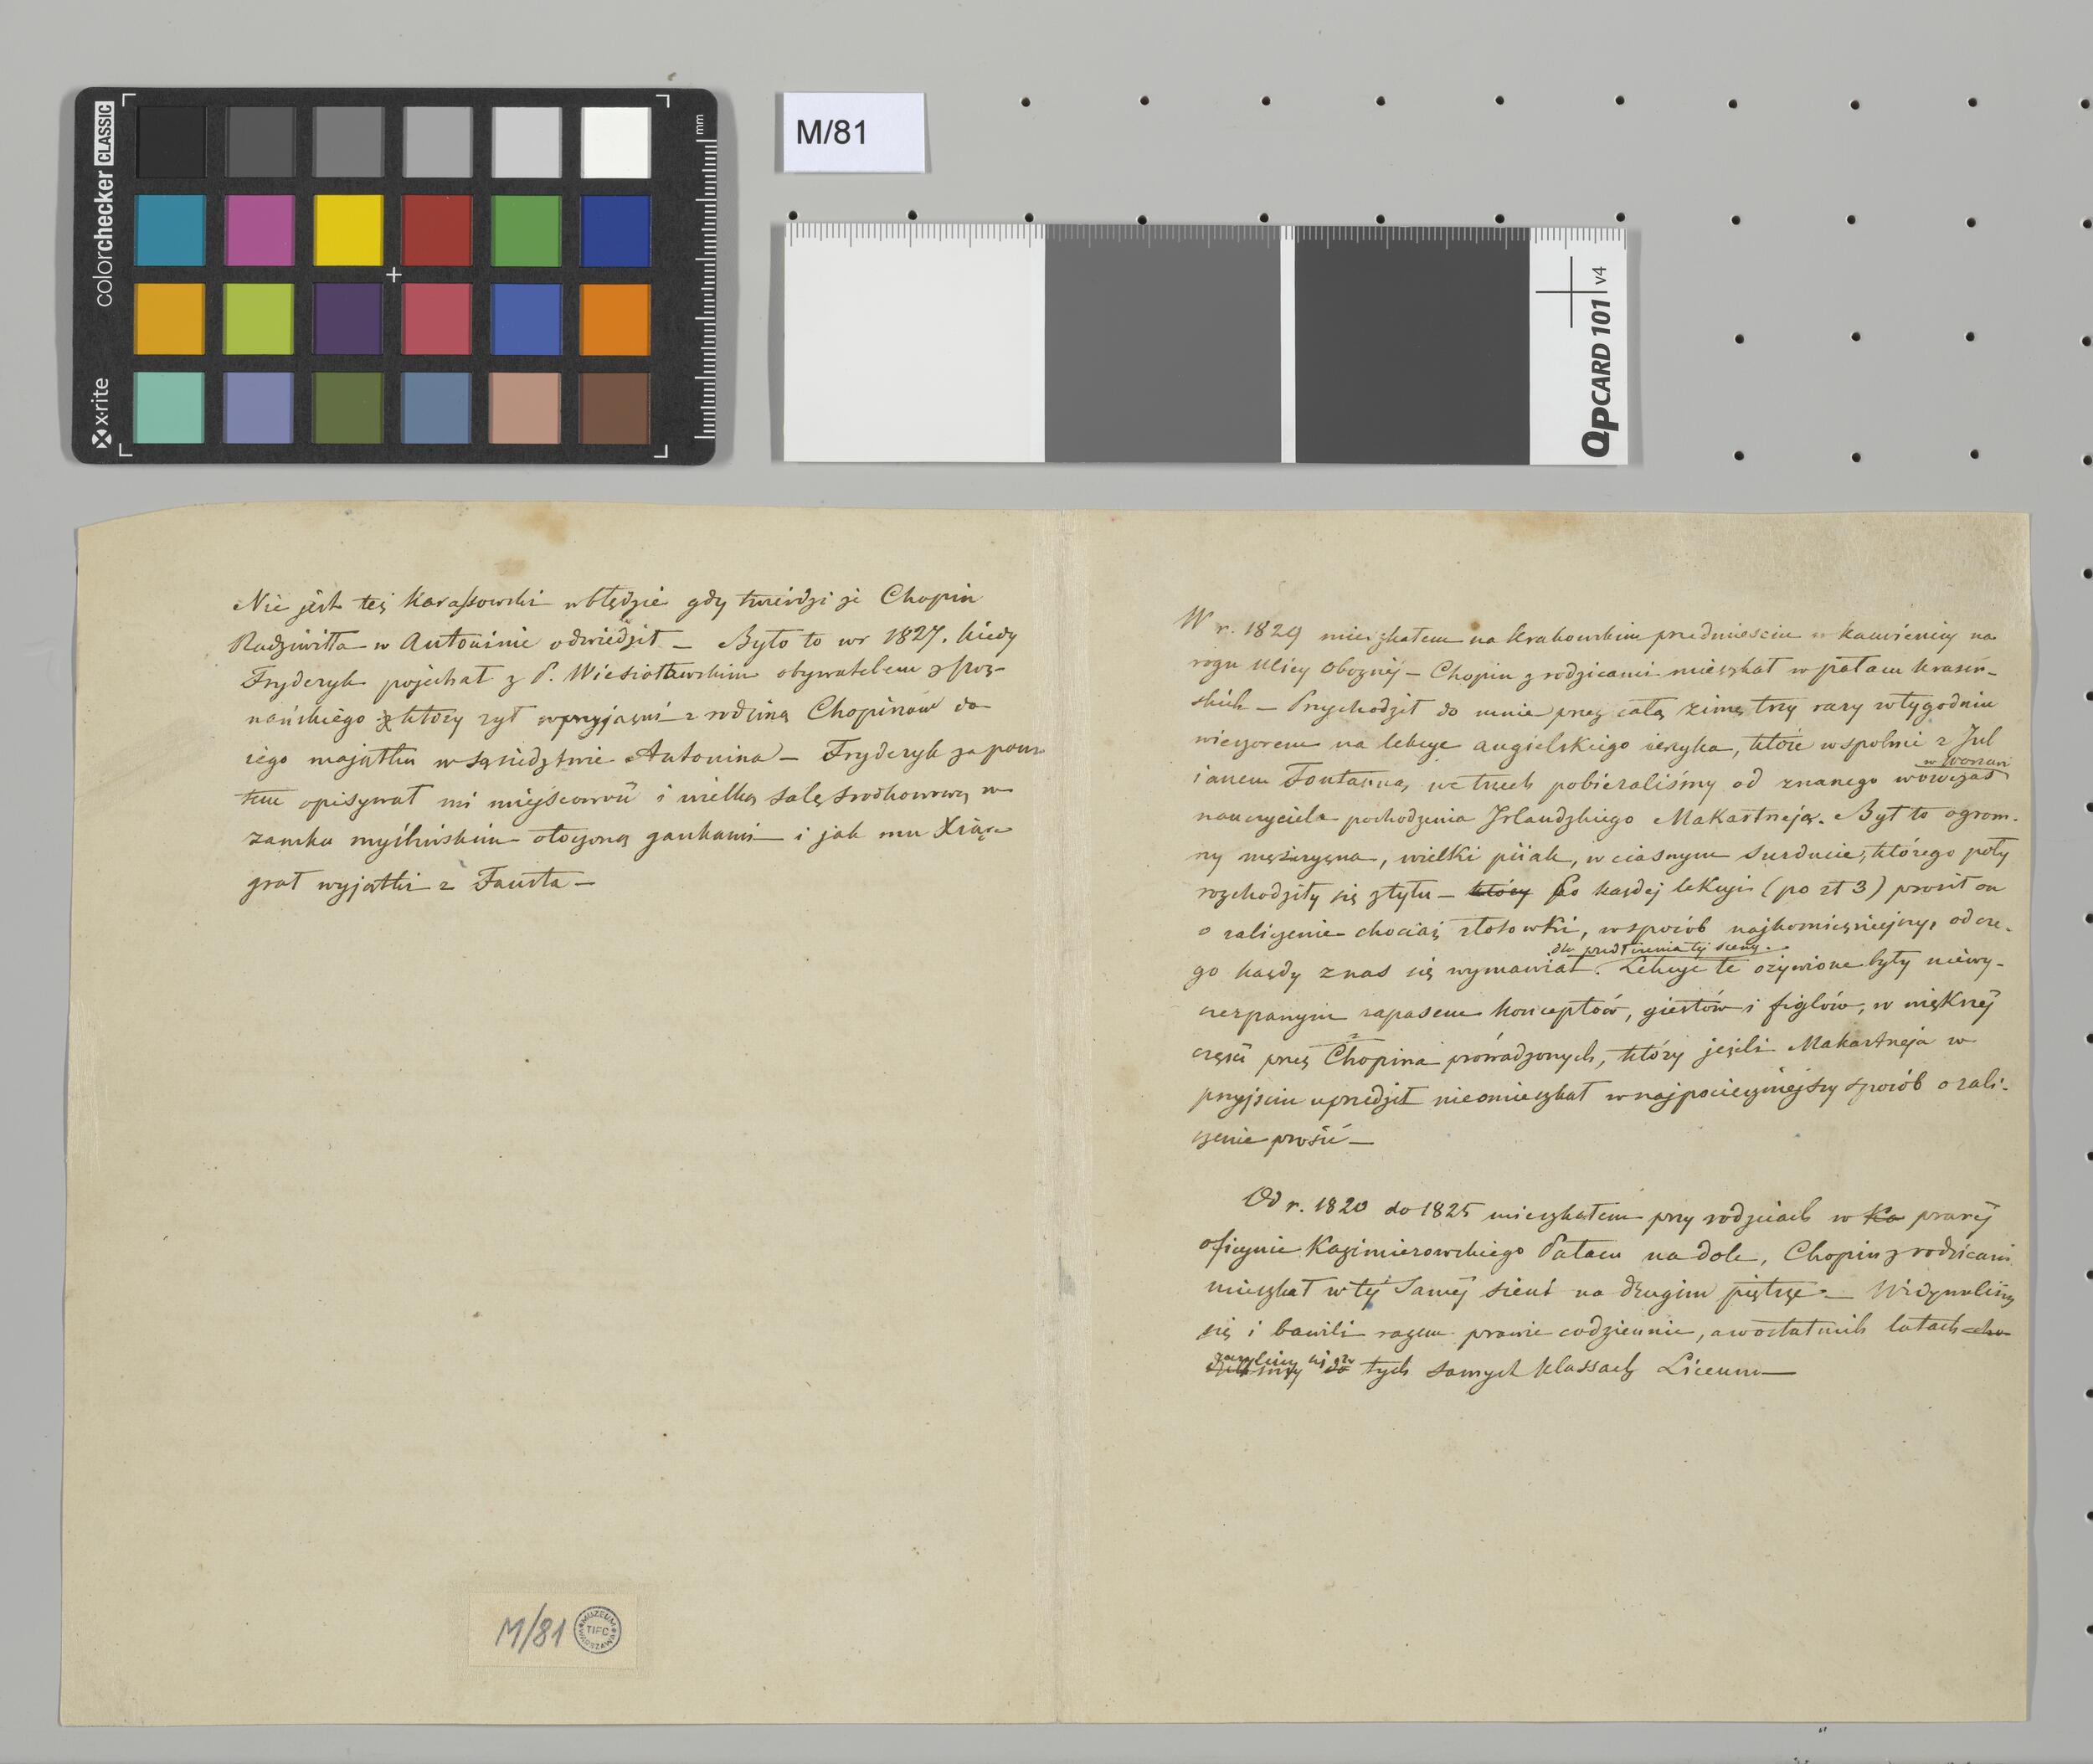 colorchecker CLASSIC
x·rite
mm
M/81
QPCARD 101 v4
Nie jest też Karassowski w błędzie gdy twierdzi że Chopin
Radziwiłła w Antoninie odwiedził — Było to w r 1827. kiedy
Fryderyk pojechał z P. Wiesiołowskim obywatelem z Poz-
nańskiego który żył w przyjaźni z rodziną Chopinów do
iego majątku w sąsiedztwie Antonina — Fryderyk za pow-
tem opisywał mi miejscowość i wielką salę środkowową w
zamku myśliwskim otoczoną gankami i jak mu Xiąże
grał wyjątki z Fausta —
M/81
MUZEUM TIFC WARSZAWA
W r. 1829 mieszkałem na krakowskim przedmieściu w kamienicy na
rogu ulicy Oboznéj — Chopin z rodzicami mieszkał w pałacu Krasiń-
skich — Przychodził do mnie przez całą zimę trzy razy w tygodniu
wieczorem na lekcye angielskiego ięzyka, które wspolnie z Jul
ianem Fontanną, we trzech pobieraliśmy od znanego wówczas
w Warszaw
nauczyciela pochodzenia Irlandzkiego Makartneja. Był to ogrom-
ny mężczyzna, wielki pijak, w ciasnym surducie, którego poły
rozchodziły się z tyłu — który Po każdej lekcyi (po zł 3) prosił on
o zaliczenie chociaż złotowki, w sposób najkomiczniejszy, od cze-
dla przedłużenia tej sceny.
go każdy z nas się wymawiał. Lekcye te ożywione były niewy-
czerpanym zapasem konceptów, giestów i figlów, w większéj
części przez Chopina prowadzonych, który jeżeli Makartneja w
przyjściu uprzedził nieomieszkał w najpocieszniejszy sposób o zali-
czenie prosić —
Od r. 1820 do 1825 mieszkałem przy rodzicach w Ka prawéj
oficynie Kazimierowskiego Pałacu na dole, Chopin z rodzicami
mieszkał w téj saméj sieni na drugim piętrze. — Widywaliśmy
się i bawili razem prawie codziennie, a w ostatnich latach cho
dziliśmy do tych samych klassach Liceum —